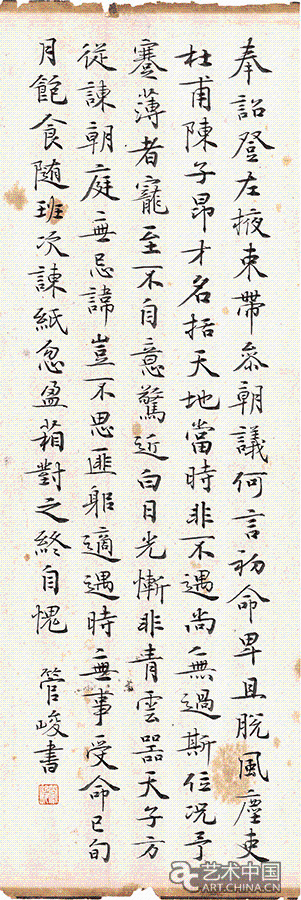 奉詔登左掖束帶叅朝議何言初命卑且脫風塵吏
杜甫陳子昂才名括天地當時非不遇尚無過斯位况予
蹇薄者寵至不自意驚近白日光慚非青雲器天子方
從諫朝庭無忌諱豈不思匪躬適遇時無事受命已旬
月飽食随班次諫紙忽盈箱對之終自愧 管峻書
艺术中国
ART.CHINA.CN